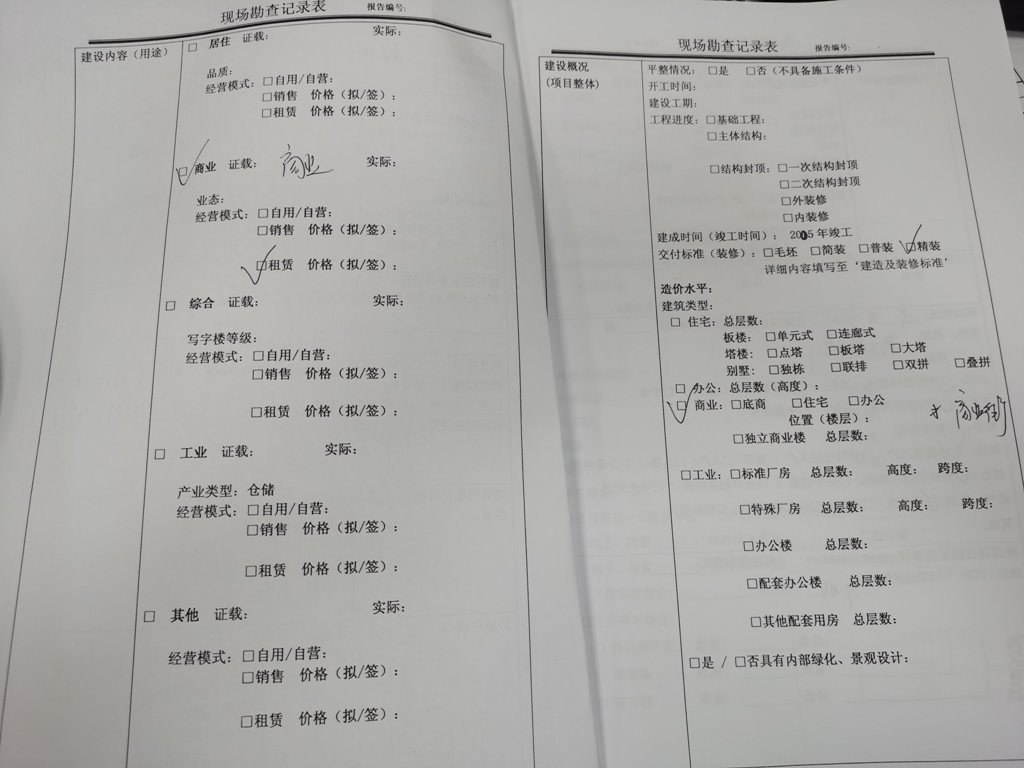 现场勘查记录表 报告编号:
建设内容（用途）
□ 居住 证载: 实际:
品质:
经营模式: □自用/自营:
□销售 价格（拟/签）:
□租赁 价格（拟/签）:
□ 商业 证载: 商业 实际:
业态:
经营模式: □自用/自营:
□销售 价格（拟/签）:
☑租赁 价格（拟/签）:
□ 综合 证载: 实际:
写字楼等级:
经营模式: □自用/自营:
□销售 价格（拟/签）:
□租赁 价格（拟/签）:
□ 工业 证载: 实际:
产业类型: 仓储
经营模式: □自用/自营:
□销售 价格（拟/签）:
□租赁 价格（拟/签）:
□ 其他 证载: 实际:
经营模式: □自用/自营:
□销售 价格（拟/签）:
□租赁 价格（拟/签）:
现场勘查记录表 报告编号:
建设概况
(项目整体)
平整情况: □是 □否（不具备施工条件）
开工时间:
建设工期:
工程进度: □基础工程:
□主体结构:
□结构封顶: □一次结构封顶
□二次结构封顶
□外装修
□内装修
建成时间（竣工时间）: 2005年竣工
交付标准（装修）: □毛坯 □简装 □普装 ☑精装
详细内容填写至‘建造及装修标准’
造价水平:
建筑类型:
□ 住宅: 总层数:
板楼: □单元式 □连廊式
塔楼: □点塔 □板塔 □大塔
别墅: □独栋 □联排 □双拼 □叠拼
□ 办公: 总层数（高度）:
☑ 商业: □底商 □住宅 □办公
位置（楼层）: 商业街
□独立商业楼 总层数:
□工业: □标准厂房 总层数: 高度: 跨度:
□特殊厂房 总层数: 高度: 跨度:
□办公楼 总层数:
□配套办公楼 总层数:
□其他配套用房 总层数:
□是 / □否具有内部绿化、景观设计: